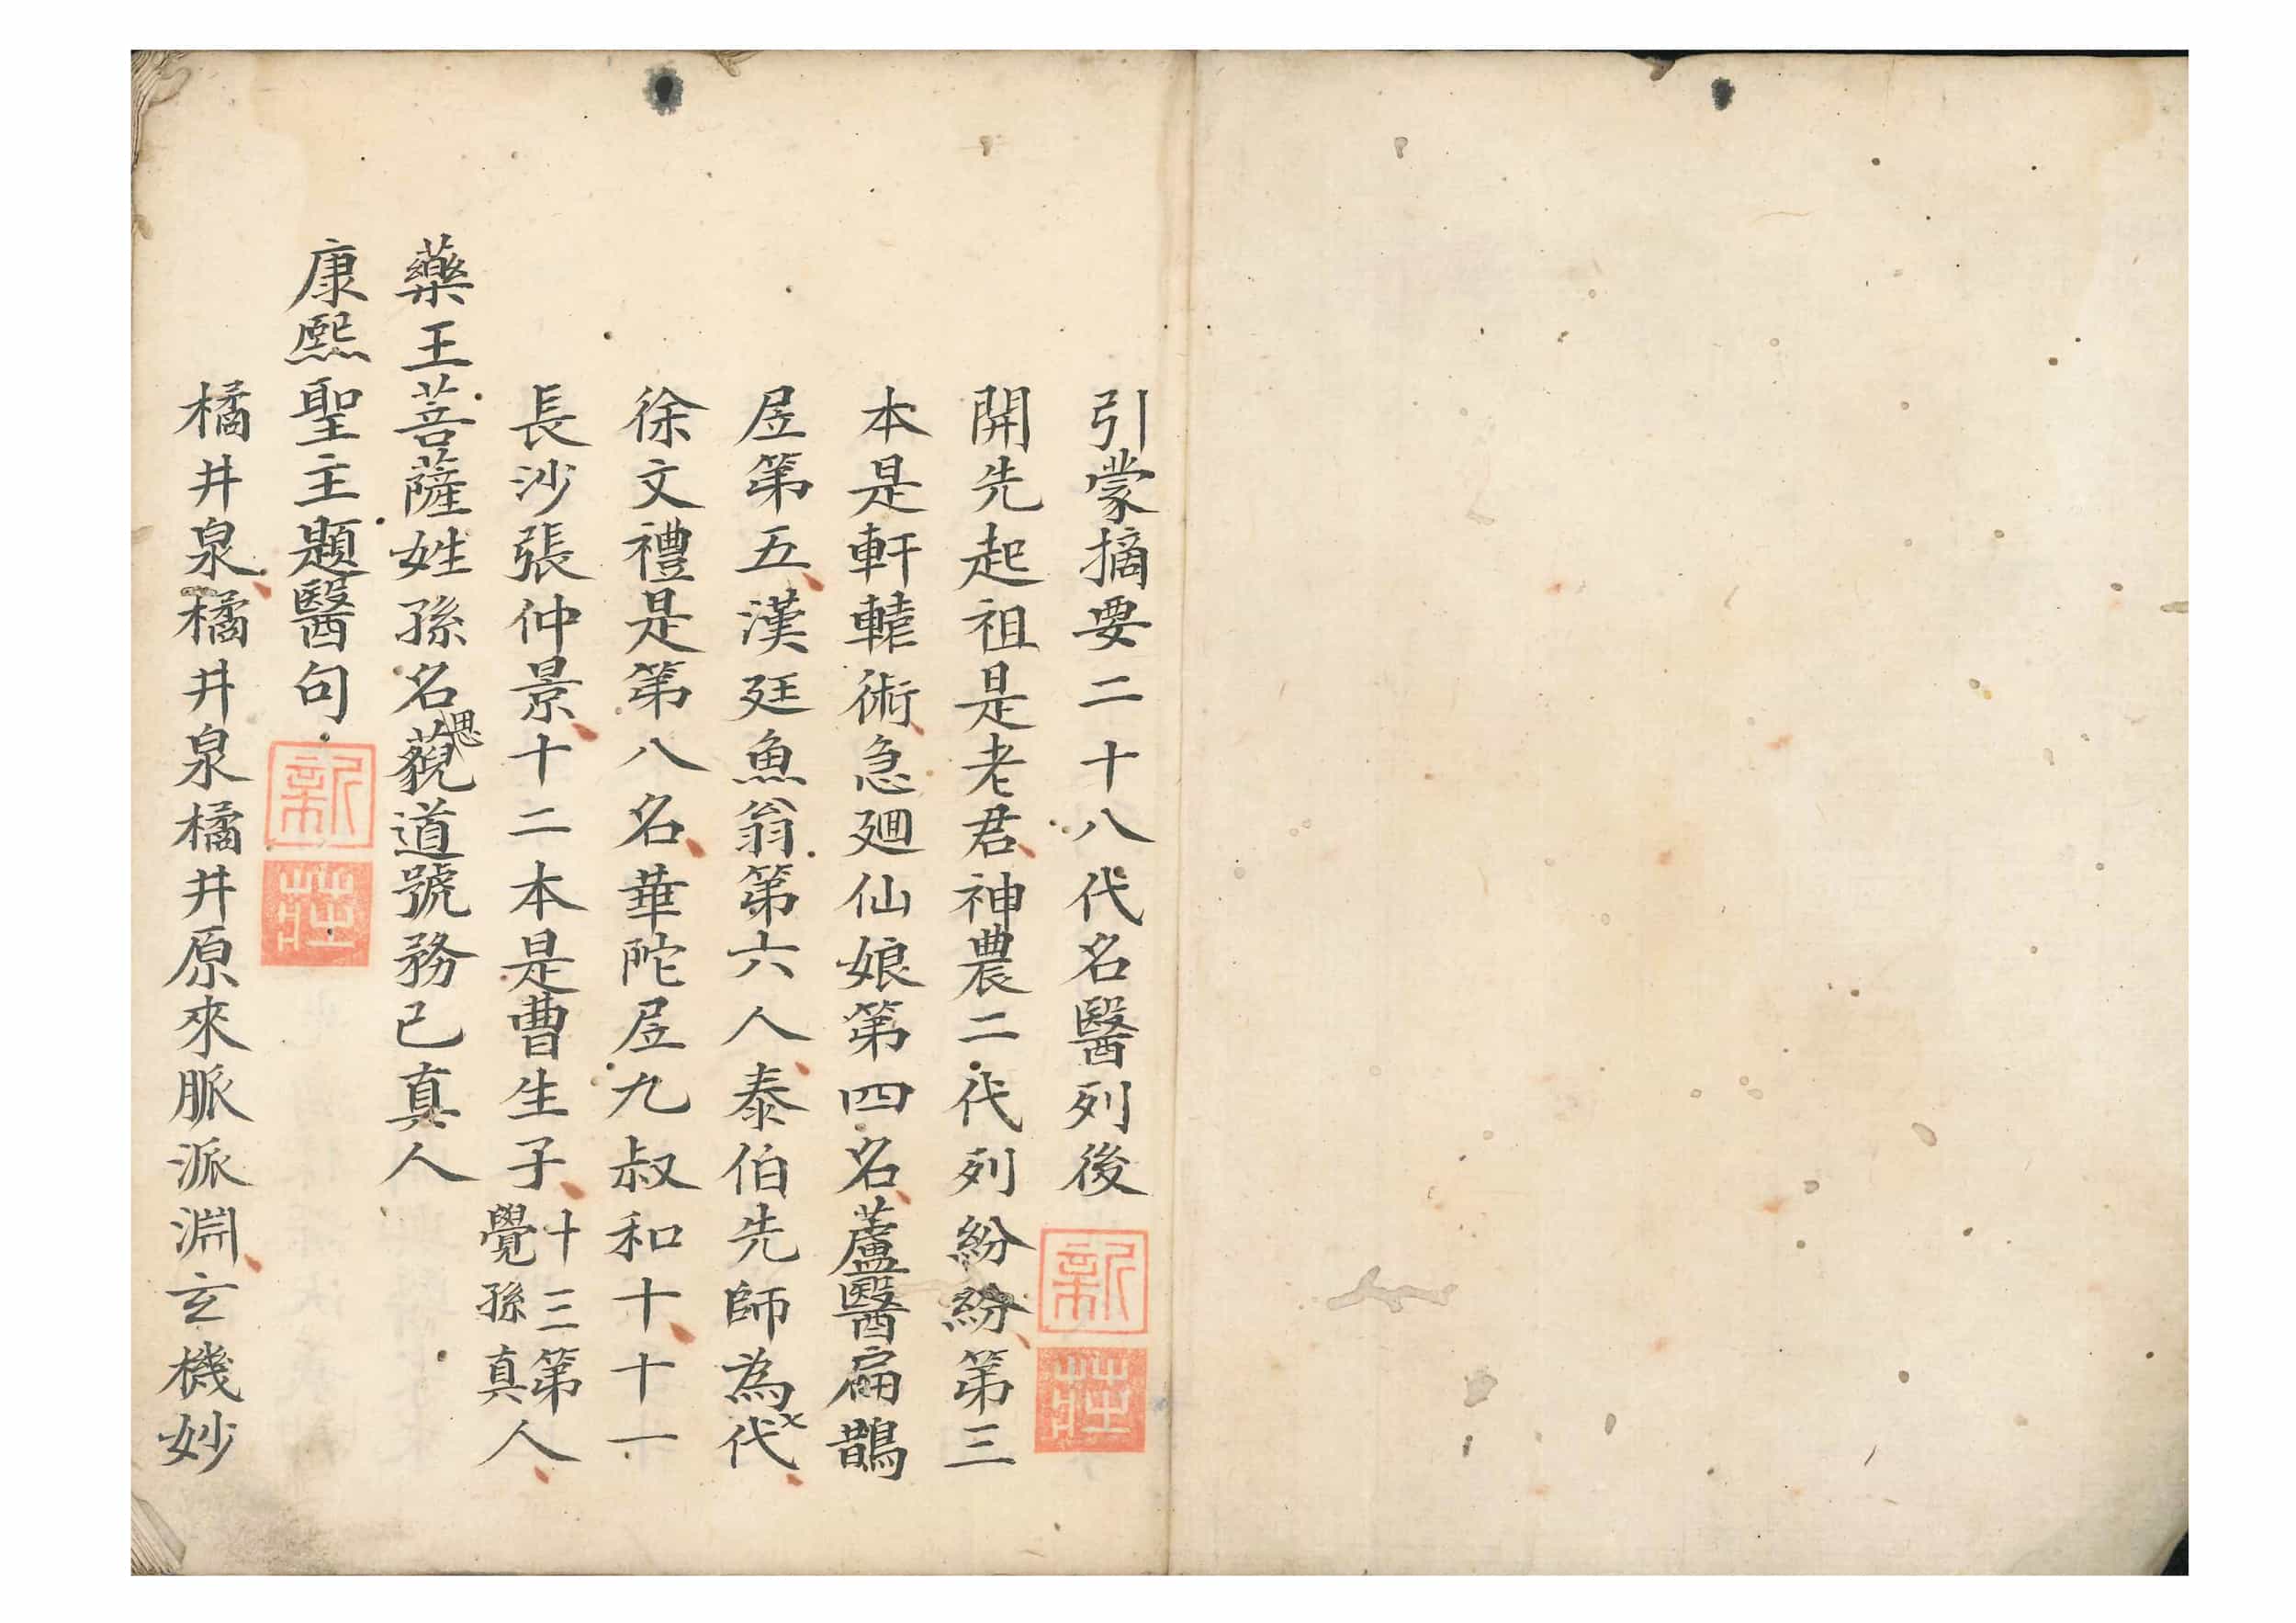 引蒙摘要二十八代名醫列後
新
莊
開先起祖是老君神農二代列紛紛第三
本是軒轅術急廻仙娘第四名蘆醫扁鵲
居第五漢廷魚翁第六人泰伯先師為代
徐文禮是第八名華陀居九叔和十十一
長沙張仲景十二本是曹生子十三第
覺孫真人
藥王菩薩姓孫名藐思道號務己真人
康熙聖主題醫句
新
莊
橘井泉橘井泉橘井原來脈派淵玄機妙